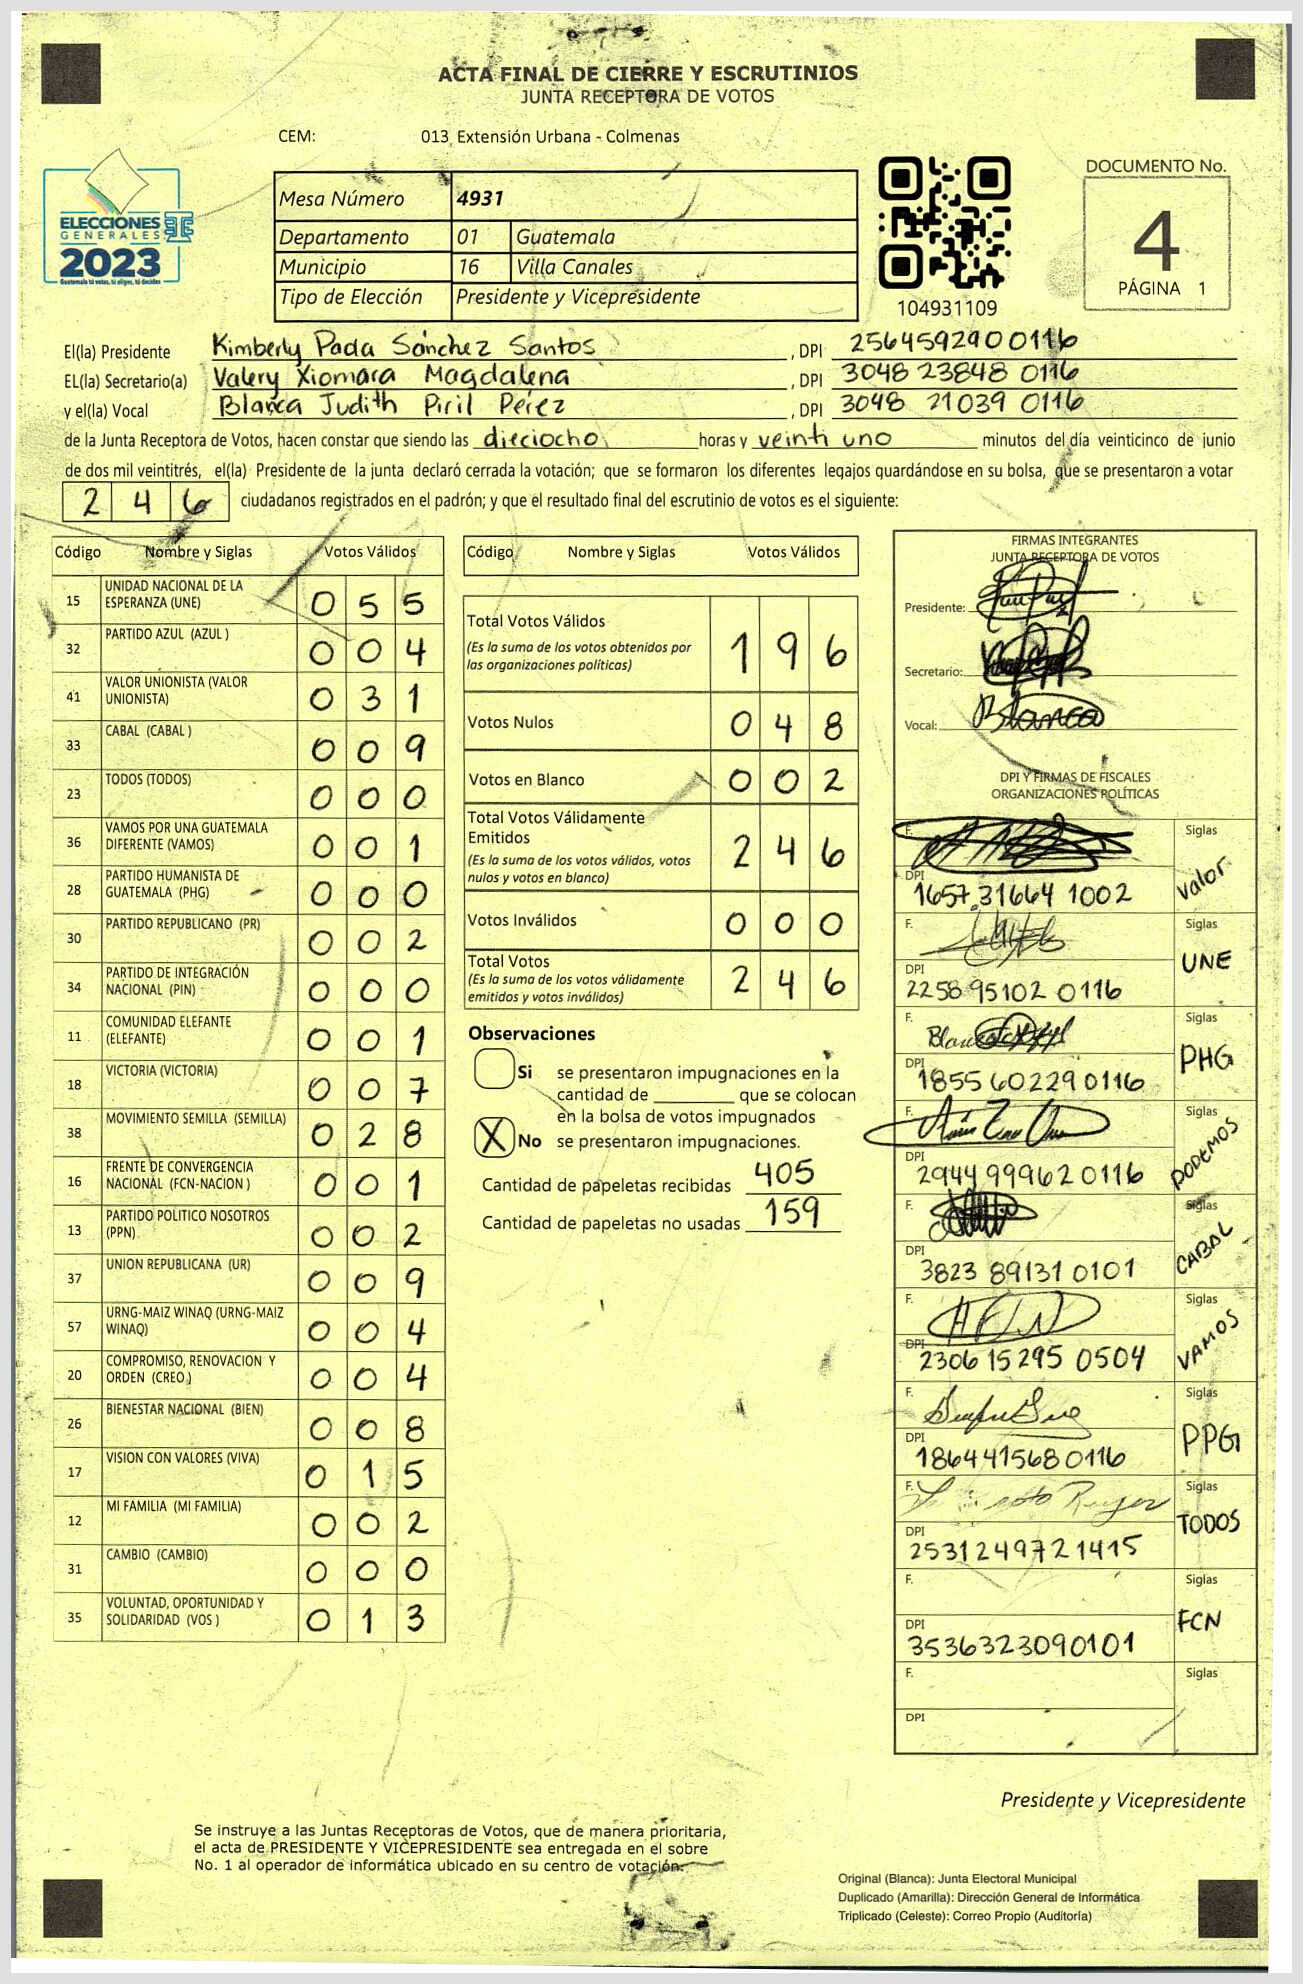 ACTA FINAL DE CIERRE Y ESCRUTINIOS
JUNTA RECEPTORA DE VOTOS
CEM: 013 Extensión Urbana - Colmenas
ELECCIONES
GENERALES
2023
Guatemala tú votas, tú eliges, tú decides
Mesa Número 4931
Departamento 01 Guatemala
Municipio 16 Villa Canales
Tipo de Elección Presidente y Vicepresidente
104931109
DOCUMENTO No.
4
PÁGINA 1
El(la) Presidente Kimberly Pada Sánchez Santos, DPI 2564592900116
EL(la) Secretario(a) Valery Xiomara Magdalena, DPI 3048 23848 0116
y el(la) Vocal Blanca Judith Piril Pérez, DPI 3048 21039 0116
de la Junta Receptora de Votos, hacen constar que siendo las dieciocho horas y veinti uno minutos del día veinticinco de junio
de dos mil veintitrés, el(la) Presidente de la junta declaró cerrada la votación; que se formaron los diferentes legajos guardándose en su bolsa, que se presentaron a votar
246 ciudadanos registrados en el padrón; y que el resultado final del escrutinio de votos es el siguiente:
Código Nombre y Siglas Votos Válidos
15 UNIDAD NACIONAL DE LA ESPERANZA (UNE) 055
32 PARTIDO AZUL (AZUL ) 004
41 VALOR UNIONISTA (VALOR UNIONISTA) 031
33 CABAL (CABAL ) 009
23 TODOS (TODOS) 000
36 VAMOS POR UNA GUATEMALA DIFERENTE (VAMOS) 001
28 PARTIDO HUMANISTA DE GUATEMALA (PHG) 000
30 PARTIDO REPUBLICANO (PR) 002
34 PARTIDO DE INTEGRACIÓN NACIONAL (PIN) 000
11 COMUNIDAD ELEFANTE (ELEFANTE) 001
18 VICTORIA (VICTORIA) 007
38 MOVIMIENTO SEMILLA (SEMILLA) 028
16 FRENTE DE CONVERGENCIA NACIONAL (FCN-NACION ) 001
13 PARTIDO POLITICO NOSOTROS (PPN) 002
37 UNION REPUBLICANA (UR) 009
57 URNG-MAIZ WINAQ (URNG-MAIZ WINAQ) 004
20 COMPROMISO, RENOVACION Y ORDEN (CREO ) 004
26 BIENESTAR NACIONAL (BIEN) 008
17 VISION CON VALORES (VIVA) 015
12 MI FAMILIA (MI FAMILIA) 002
31 CAMBIO (CAMBIO) 000
35 VOLUNTAD, OPORTUNIDAD Y SOLIDARIDAD (VOS ) 013
Código Nombre y Siglas Votos Válidos
Total Votos Válidos 196
(Es la suma de los votos obtenidos por
las organizaciones políticas)
Votos Nulos 048
Votos en Blanco 002
Total Votos Válidamente Emitidos 246
(Es la suma de los votos válidos, votos
nulos y votos en blanco)
Votos Inválidos 000
Total Votos 246
(Es la suma de los votos válidamente
emitidos y votos inválidos)
Observaciones
Si se presentaron impugnaciones en la
cantidad de ________ que se colocan
en la bolsa de votos impugnados
X No se presentaron impugnaciones.
Cantidad de papeletas recibidas 405
Cantidad de papeletas no usadas 159
FIRMAS INTEGRANTES
JUNTA RECEPTORA DE VOTOS
Presidente:
Secretario:
Vocal: Blanca
DPI Y FIRMAS DE FISCALES
ORGANIZACIONES POLÍTICAS
F. Siglas
DPI 1657 31664 1002 Valor
F. Siglas
DPI 2258 95102 0116 UNE
F. Siglas
DPI 1855 60229 0116 PHG
F. Siglas
DPI 2944 99962 0116 PODEMOS
F. Siglas
DPI 3823 89131 0101 CABAL
F. Siglas
DPI 2306 15295 0504 VAMOS
F. Siglas
DPI 1864415680116 PPG
F. Siglas
DPI 2531249721415 TODOS
F. Siglas
DPI 3536323090101 FCN
F. Siglas
DPI
Presidente y Vicepresidente
Se instruye a las Juntas Receptoras de Votos, que de manera prioritaria,
el acta de PRESIDENTE Y VICEPRESIDENTE sea entregada en el sobre
No. 1 al operador de informática ubicado en su centro de votación.
Original (Blanca): Junta Electoral Municipal
Duplicado (Amarilla): Dirección General de Informática
Triplicado (Celeste): Correo Propio (Auditoría)